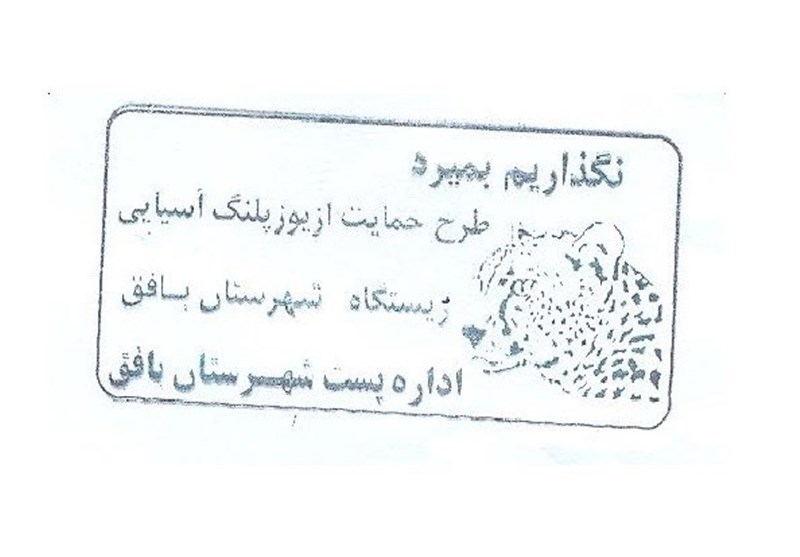 نگذاریم بمیرد
طرح حمایت ازیوزپلنگ آسیایی
زیستگاه شهرستان بافق
اداره پست شهرستان بافق